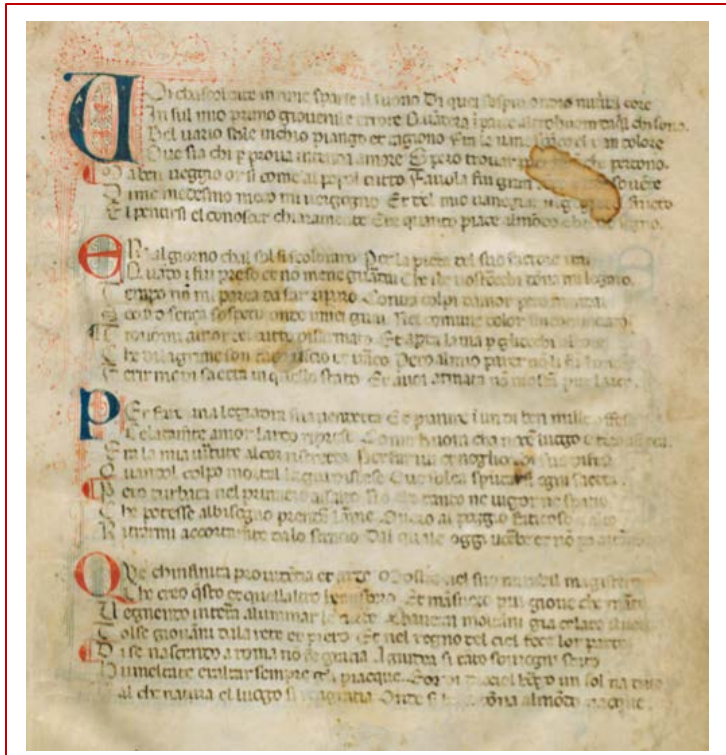 Voi chascoltate in rime sparse il suono Di quei sospiri ondio nudriva il core
In sul mio primo giovenile errore Quandera in parte altrohuom da quel chi sono.
Del vario stile inchio piango et ragiono Fra le vane speranze el van dolore
Ove sia chi p prova intenda amore Spero trovar pieta non che perdono.
Ma ben veggio or si come al popol tutto Favola fui gran sovente
Di me medesmo meco mi vergogno Et del mio vaneggiar vergogna frutto
El pentersi el conoscer chiaramente Che quanto piace al mondo e breve sogno.
Era il giorno chal sol si scoloraro Per la pieta del suo factore i rai
Quando i fui preso et no me ne guardai Che i be vostrocchi dona mi legaro.
Tempo non mi parea da far riparo Contra colpi damor pero mandai
Secur senza sospetto onde i miei guai Nel comune dolor
Trovommi amor del tutto disarmato Et aperta la via p gliocchi al core
Che di lagrime son facti uscio et varco Pero al mio parer no li fu honore
Ferir me di saetta in quello stato
Per fare una leggiadra sua vendetta Et punire i un di ben mille offese
Celatamente amor larco riprese Come huom cha nocer luogo e tempo
Era la mia virtute al cor ristretta Per far ivi et negliocchi sue difese
Quandol colpo mortal la giu discese Ove solea spuntarsi ogni saetta.
Pero turbata nel primiero assalto Non ebbe tanto ne vigor ne spatio
Che potesse al bisogno prender larme Overo al poggio faticoso et alto
Ritrarmi accortamente da lo stratio Dal quale oggi vorrebbe et no po aitarme
Que chinfinita providentia et arte Mostro nel suo mirabil magistero
Che creo qsto et quellaltro hemispero Et mansueto piu giove che marte
Vegnendo in terra a lluminar le carte Chavean moltanni gia celato il vero
Tolse giovanni da la rete et piero Et nel regno del ciel fece lor parte
Di se nascendo a roma no fe gratia A giudea si tanto sovrogni stato
Humiltate exaltar sempre gli piacque Et or di picciol borgo un sol na dato
Tal che natura el luogo si ringratia Onde si bella dona al mondo nacque.